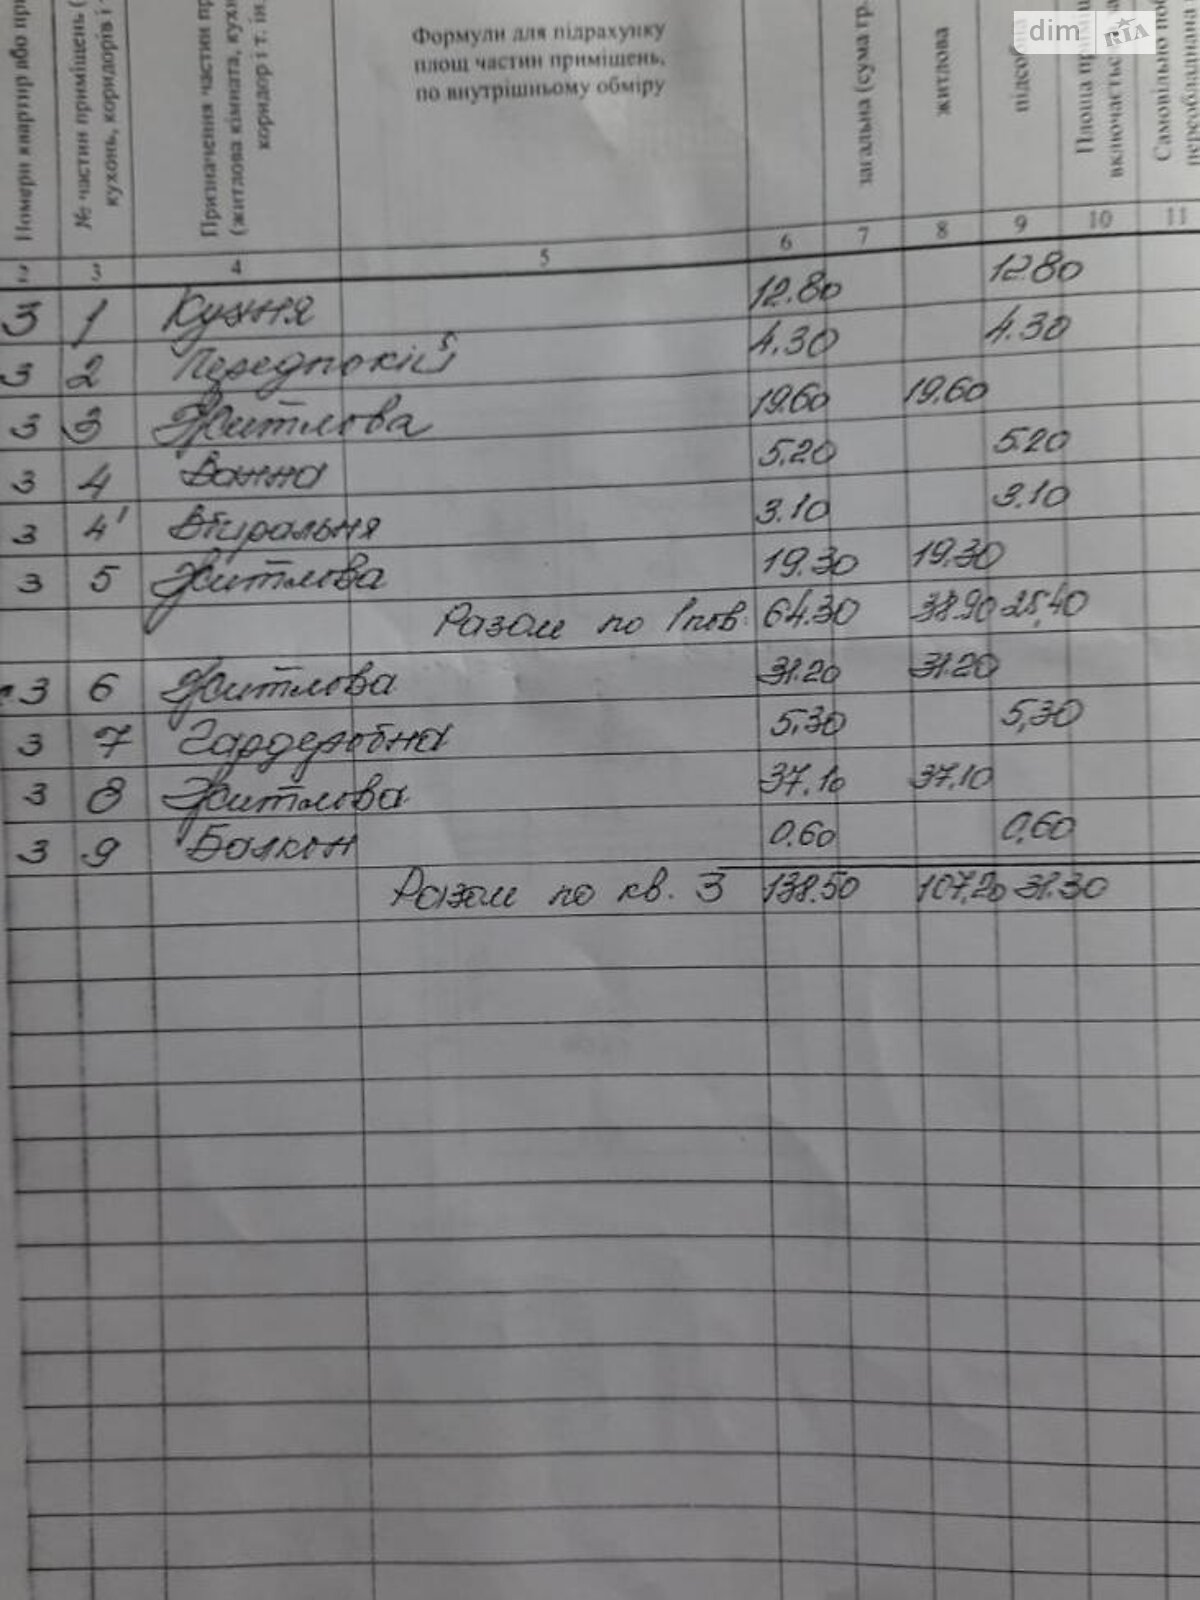 dim RIA
Номери квартир або пр
№ частин приміщень (
кухонь, коридорів і т
Призначення частин пр
(житлова кімната, кухн
коридор і т. ін.
Формули для підрахунку
площ частин приміщень,
по внутрішньому обміру
загальна (сума гр.
житлова
підсобн
Площа приміщ
включається
Самовільно поб
переобладнана
2 3 4 5 6 7 8 9 10 11
3 1 Кухня 12.80 12.80
3 2 Передпокій 4.30 4.30
3 3 Житлова 19.60 19.60
3 4 Ванна 5.20 5.20
3 4' Втиральня 3.10 3.10
3 5 Житлова 19.30 19.30
Разом по 1 пов. 64.30 38.90 25,40
3 6 Житлова 31.20 31.20
3 7 Гардеробна 5,30 5,30
3 8 Житлова 37.10 37.10
3 9 Балкон 0.60 0,60
Разом по кв. 3 138.50 107,20 31.30